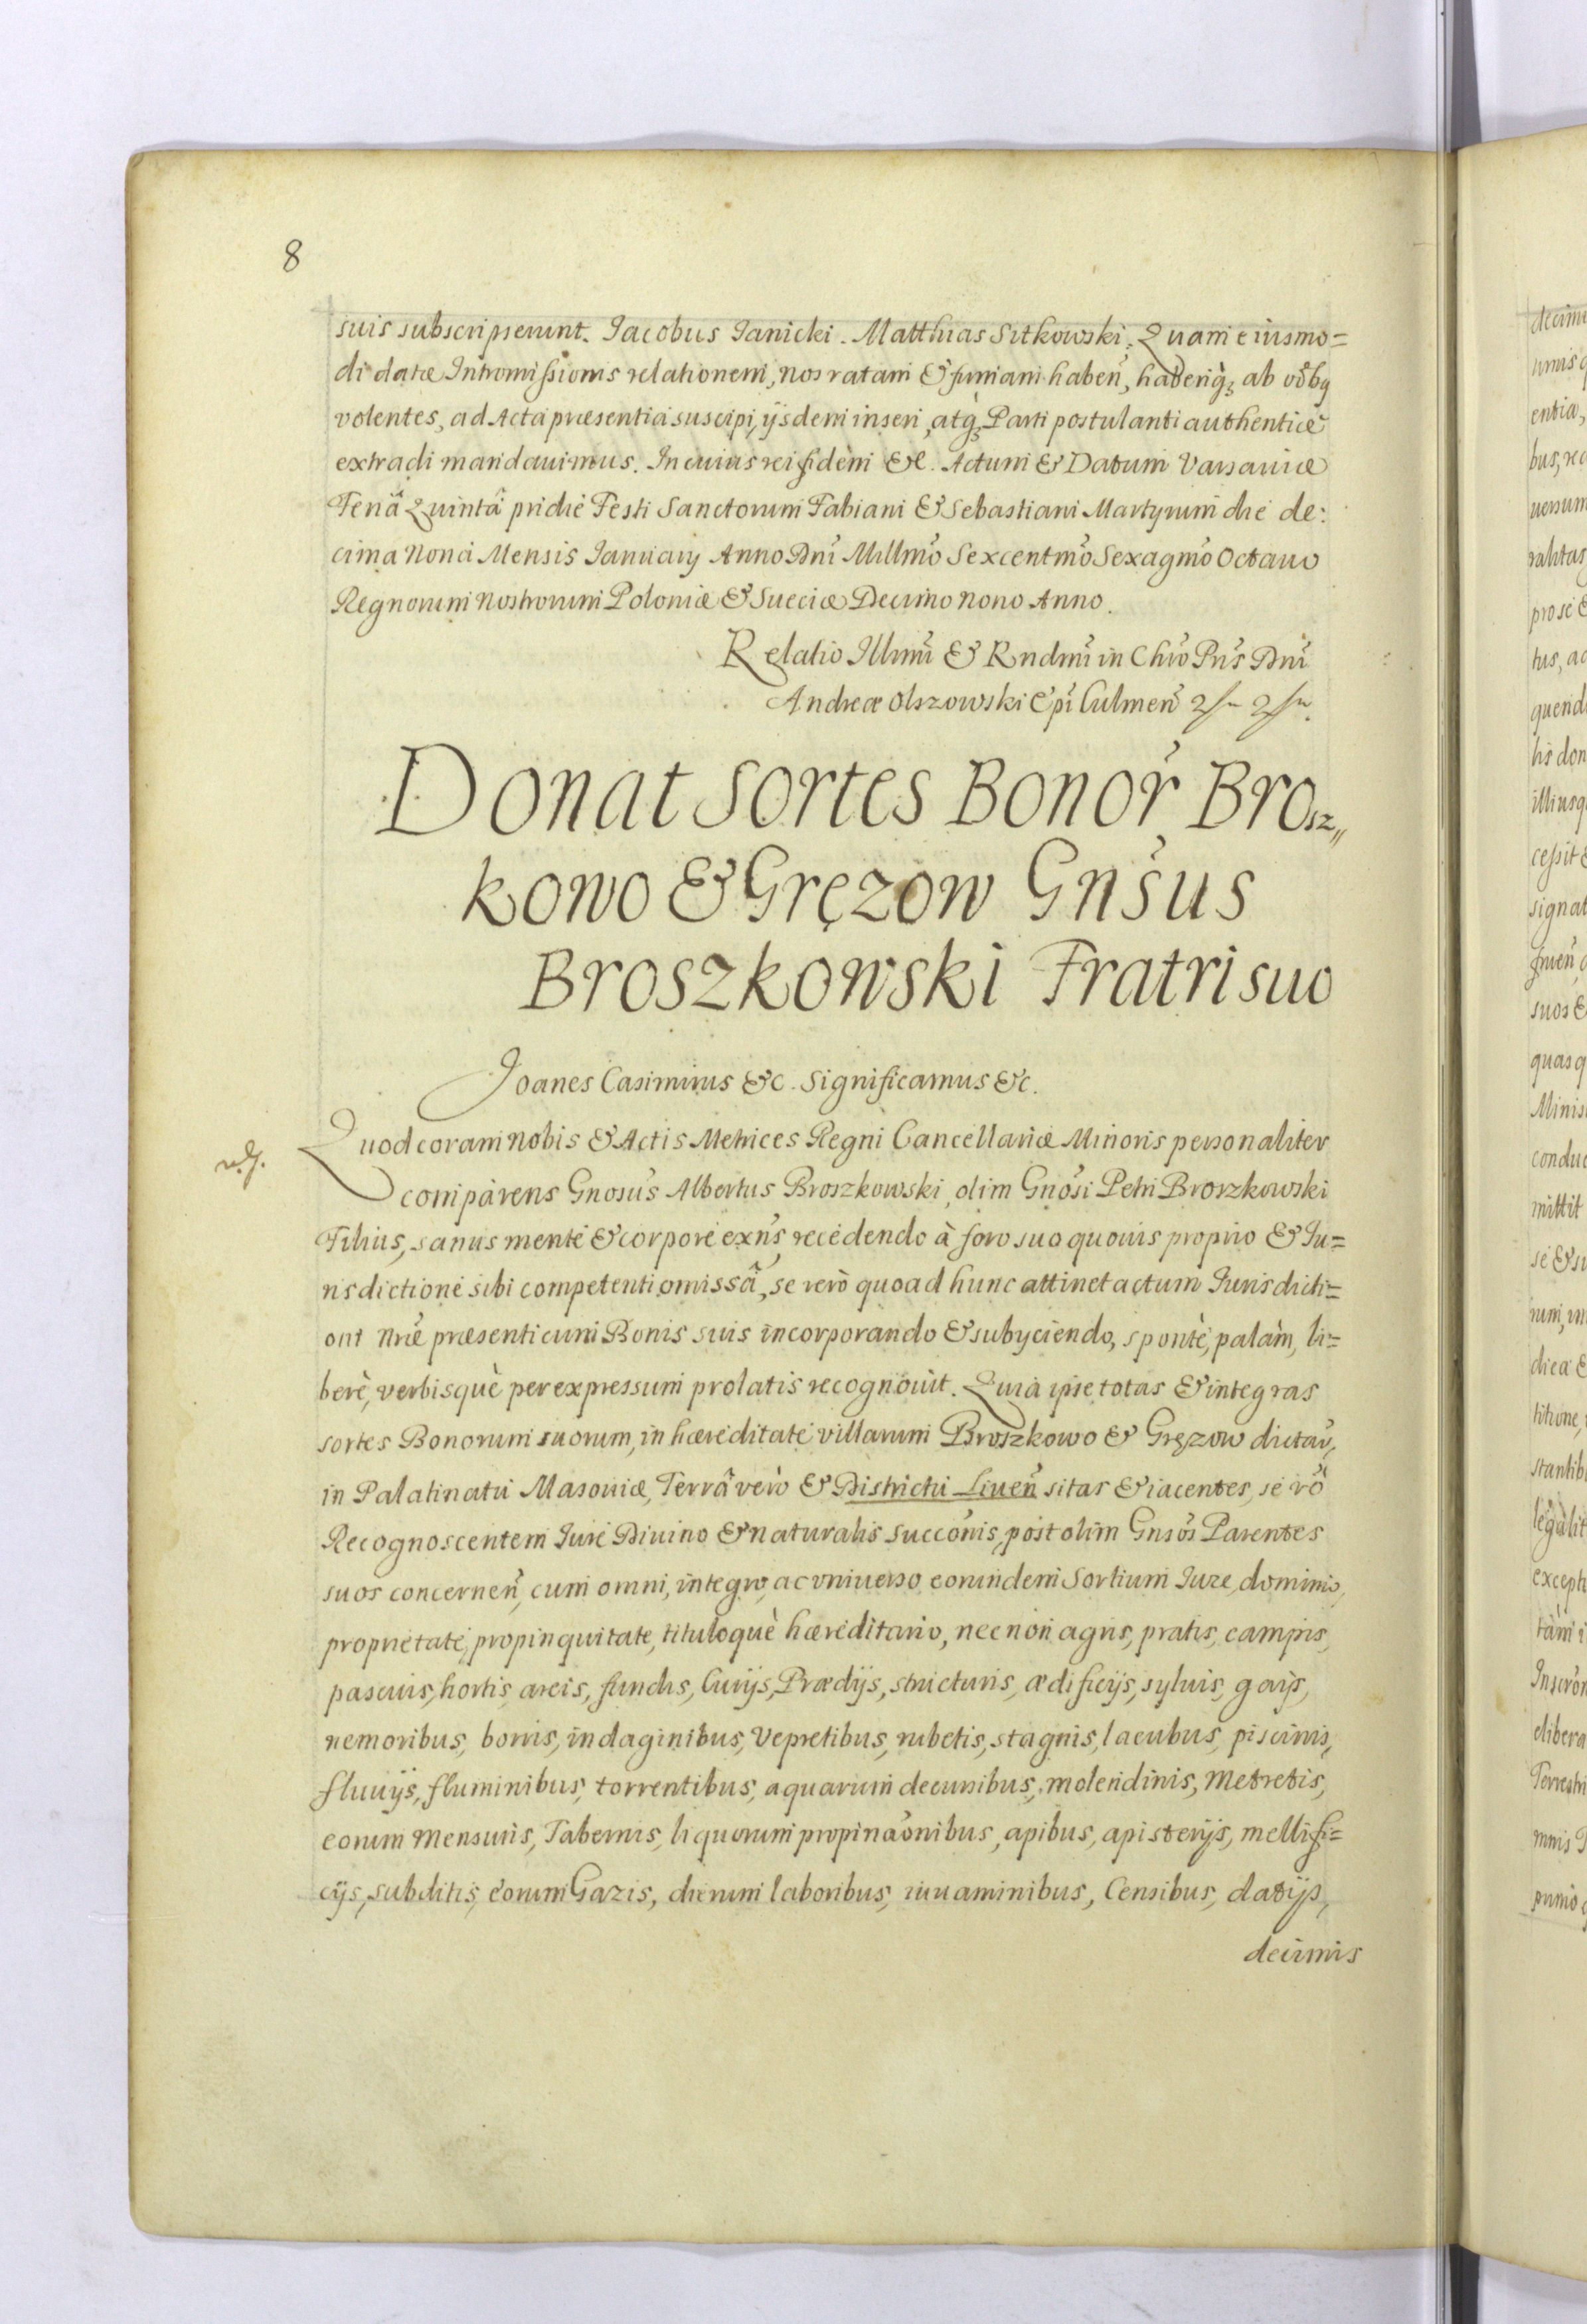 8
suis subscripserunt. Iacobus Ianicki. Matthias Sitkowski. Quam eiusmo=
di datæ Intromissionis relationem, nos ratam & firmam haben̄, haberiq̀ʒ ab oībq
volentes, ad Acta præsentia suscipi, ijsdem inseri, atq̀ʒ Parti postulanti authenticè
extradi mandauimus. In cuius rei fidem &c. Actum & Datum Varsauiæ
Feriâ Quintâ pridie Festi Sanctorum Fabiani & Sebastiani Martyrum die de:
cima nona Mensis Ianuarij Anno Dn̄i Millmō Sexcentmō Sexagmō Octauo
Regnorum Nostrorum Poloniæ & Sueciæ Decimo nono Anno.
Relatio Illmī & Rndmī in Chrō Pr̄is Dn̄i
Andreæ Olszowski Ep̄i Culmen̄
Donat Sortes Bonor̄ Bros̄z„
kowo & Gręzow Gn̄sus
Broszkowski Fratri suo
Ioanes Casimirus &c. Significamus &c.
Quod coram nobis & Actis Metrices Regni Cancellariæ Minoris personaliter
comparens Gnosūs Albertus Broszkowski, olim Gnōsi Petri Broszkowski
Filius, sanus mente & corpore exn̄s recedendo à foro suo quouis proprio & Iu=
risdictione sibi competenti omissâ, se verò quoad hunc attinet actum Iurisdicti=
oni nr̄æ præsenti cum Bonis suis incorporando & subijciendo, spontè, palàm, li=
berè, verbisquè per expressum prolatis recognouit. Quia ipse totas & integras
sortes Bonorum suorum, in hæreditate villarum Broszkowo & Gręzow dictar̄,
in Palatinatu Masouiæ, Terrâ verò & Districtu Liuen̄ sitas & iacentes, se vō
Recognoscentem Iure Diuino & naturalis succōnis, post olim Gnsōs Parentes
suos concernen̄, cum omni, integro, ac vniuerso eorundem Sortium Iure, dominio,
proprietate, propinquitate, tituloquè hæreditario, necnon agris, pratis, campis,
pascuis, hortis, areis, fundis, Curijs, Prædijs, structuris, ædificijs, syluis, gaijs,
nemoribus, borris, indaginibus, Vepretibus, rubetis, stagnis, lacubus, piscinis,
fluuijs, fluminibus, torrentibus, aquarum decursibus, molendinis, Metretis,
eorum Mensuris, Tabernis, liquorum propinaōnibus, apibus, apisterijs, mellifi=
cijs, subditis, eorum Gazis, dierum laboribus, iuuaminibus, Censibus, datijs,
decimis